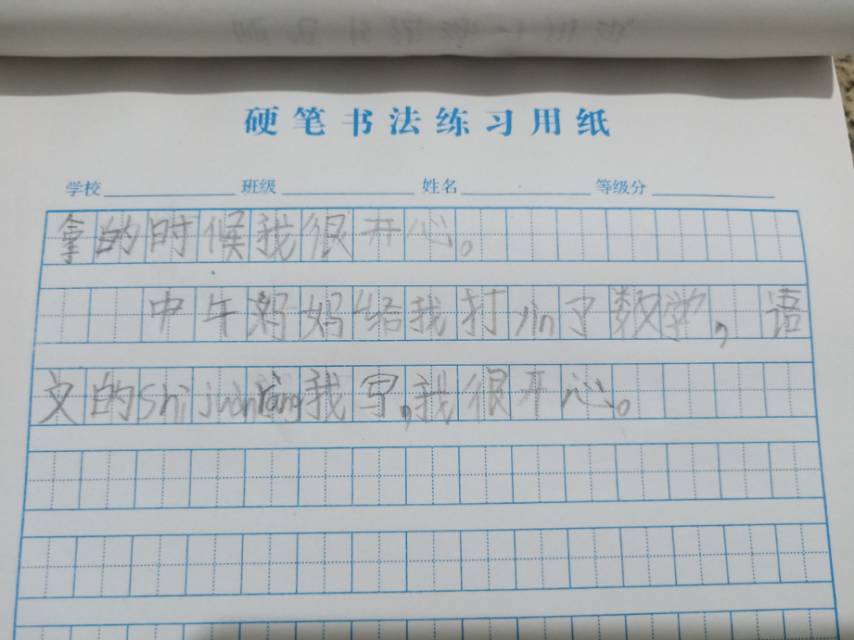 硬笔书法练习用纸
学校 班级 姓名 等级分
拿的时候我很开心。
中午妈妈给我打yin了数学，语
文的shi juàn ràng我写，我很开心。